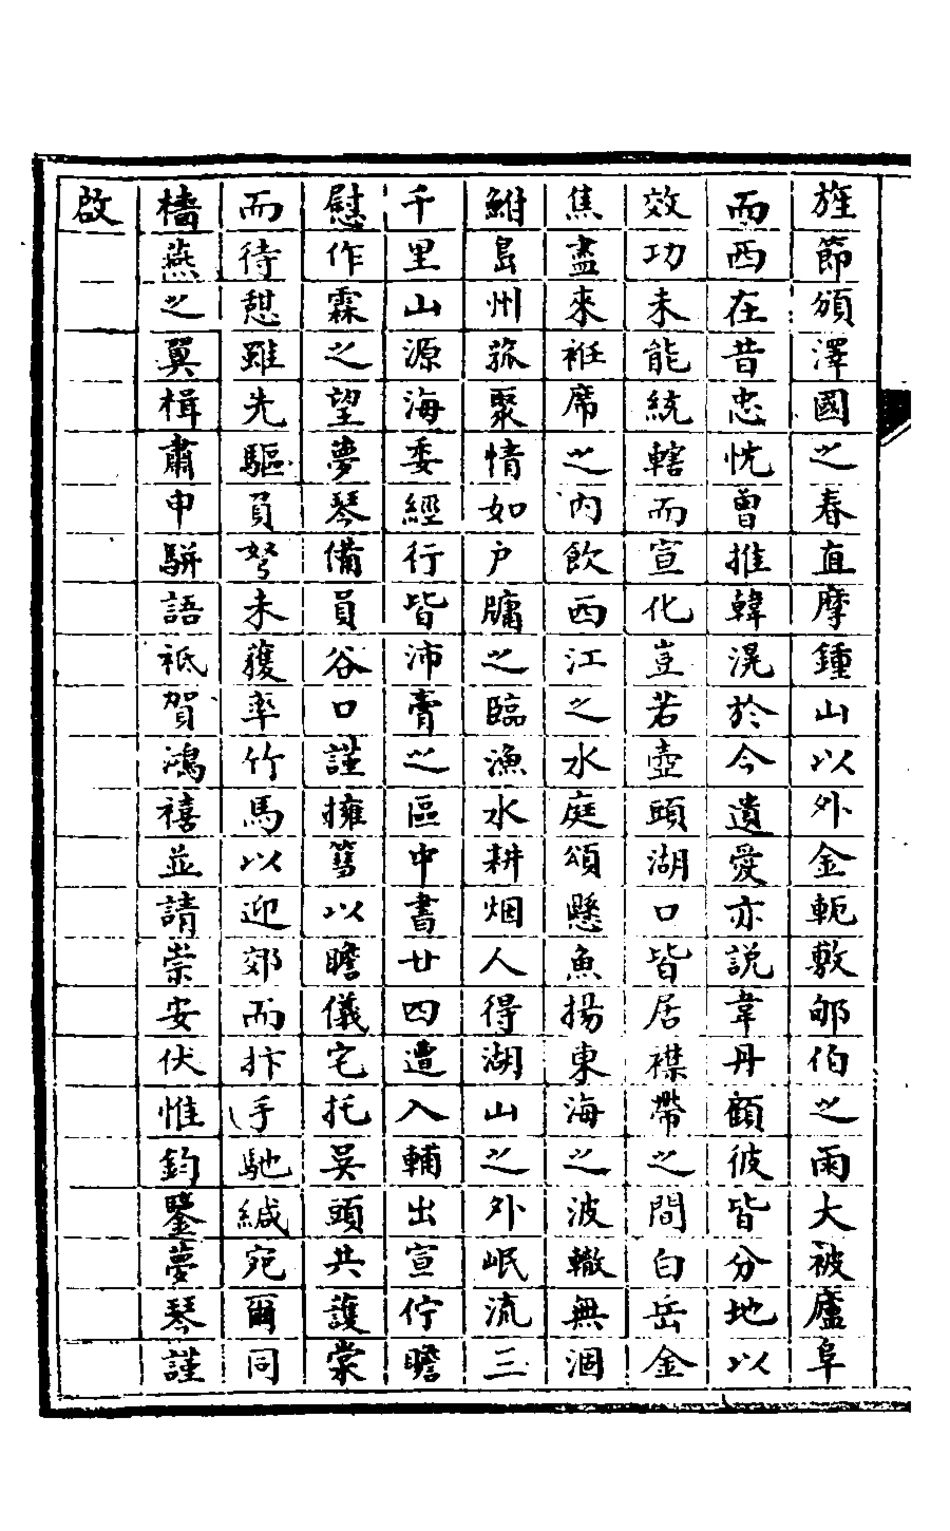 旌節頒澤國之春直摩鍾山以外金軛敷郇伯之雨大被廬阜
而西在昔忠忱曽推韓滉於今遺愛亦説韋丹顧彼皆分地以
效功未能統轄而宣化豈若壺頭湖口皆居襟帶之間白岳金
焦盡來袵席之内飲西江之水庭頌懸魚揚東海之波轍無涸
鮒島州菰聚情如户牖之臨漁水耕烟人得湖山之外岷流三
千里山源海委經行皆沛膏之區中書廿四遭入輔出宣佇瞻
慰作霖之望夢琴備員谷口謹擁篲以瞻儀宅托吳頭共護棠
而待憩雖先驅負弩未獲率竹馬以迎郊而抃手馳緘宛爾同
檣燕之翼楫肅申駢語袛賀鴻禧並請崇安伏惟鈞鑒夢琴謹
啟